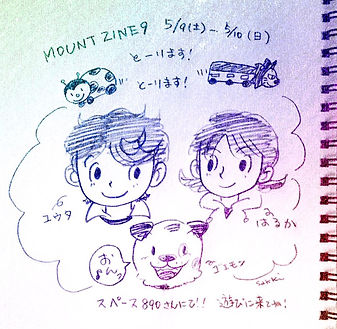 MOUNT ZINE 9 5/9(土)–5/10(日)
とーります!
とーります!
ユウタ
はるか
おんっ
ゴエモン
Sakki
スペース890さんにて!! 遊びに来てね!